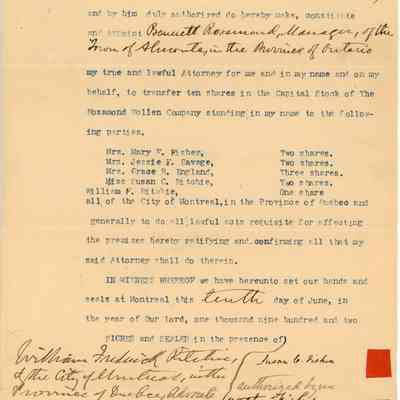 and by him duly authorized do hereby make, constitute
and appoint Bennett Rosamond, Manager, of the
Town of Almonte, in the Province of Ontario
my true and lawful Attorney for me and in my name and on my
behalf, to transfer ten shares in the Capital Stock of The
Rosamond Wollen Company standing in my name to the follow-
ing parties,
Mrs. Mary V. Fisher, Two shares.
Mrs. Jessie F. Savage, Two shares.
Mrs. Grace R. England, Three shares.
Miss Susan C. Ritchie, Two shares.
William F. Ritchie, One share
all of the City of Montreal, in the Province of Quebec and
generally to do all lawful acts requisite for effecting
the premises hereby ratifying and confirming all that my
said Attorney shall do therein.
IN WITNESS WHEREOF we have hereunto set our hands and
seals at Montreal this tenth day of June, in
the year of Our Lord, one thousand nine hundred and two
SIGNED and SEALED in the presence of)
William Fredrick Ritchie
of the City of Montreal, in the
Province of Quebec, Advocate
Susan C
authorized by